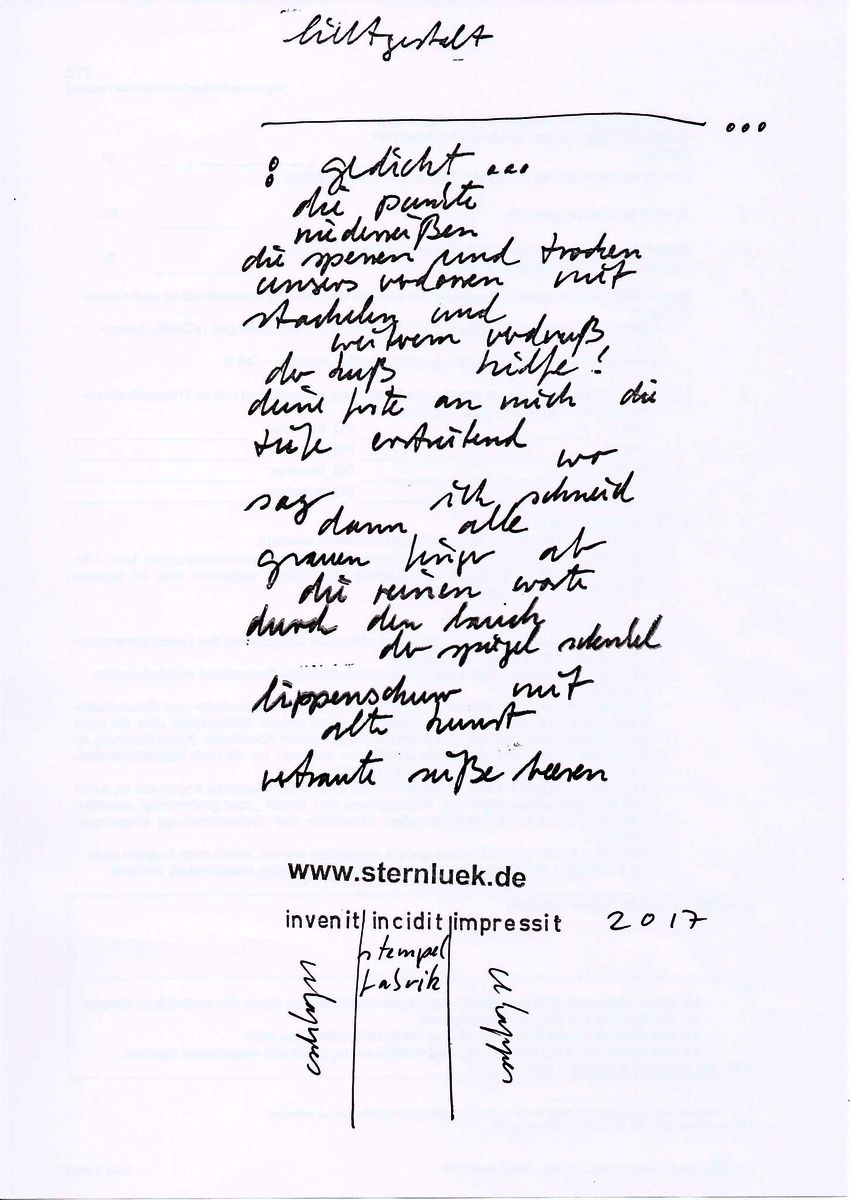 lichtgestalt
...
: gedicht ...
die punkte
niederreißen
die sperren und trocken
unsers verlorenen mit
stacheln und
weiterem verdruß
der kuß hilfe!
deine forte an mich die
tiefe erstreitend
wo
sag ich schneid
dann alle
grauen finger ab
die reinen worte
durch den bauch
der spiegel schenkel
lippenschwur mit
alte kunst
vertraute süße beeren
www.sternluek.de
invenit incidit impressit 2017
stempel
fabrik